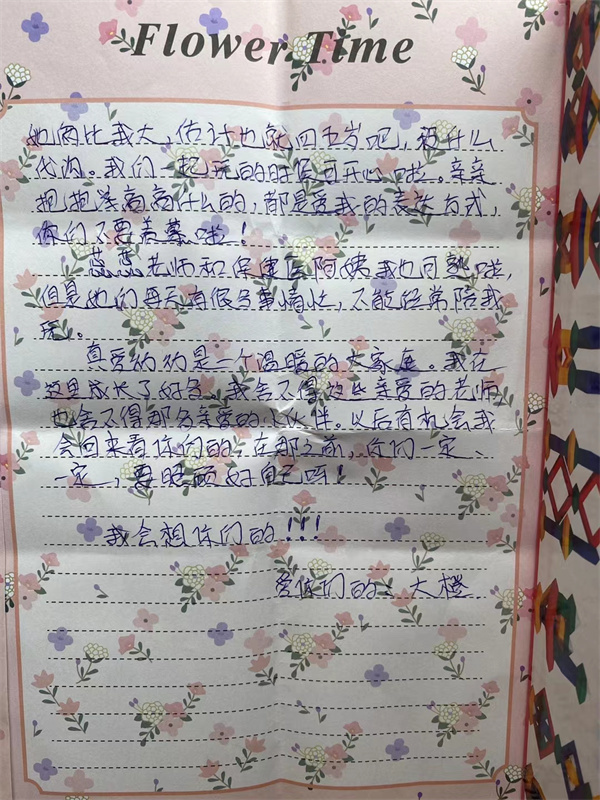 Flower Time
她俩比我大，估计也就四五岁吧，没什么
代沟。我们一起玩的时候可开心啦。亲亲
抱抱举高高什么的，都是爱我的表达方式，
你们不要羡慕啦！
蕊蕊老师和保健医阿姨我也可熟啦，
但是她们每天有很多事情忙，不能经常陪我
玩。
真爱幼幼是一个温暖的大家庭。我在
这里成长了好多，我舍不得这些亲爱的老师，
也舍不得那多亲爱的小伙伴。以后有机会我
会回来看你们的，在那之前，你们一定、
一定，要照顾好自己呀！
我会想你们的！！！
爱你们的：大橙